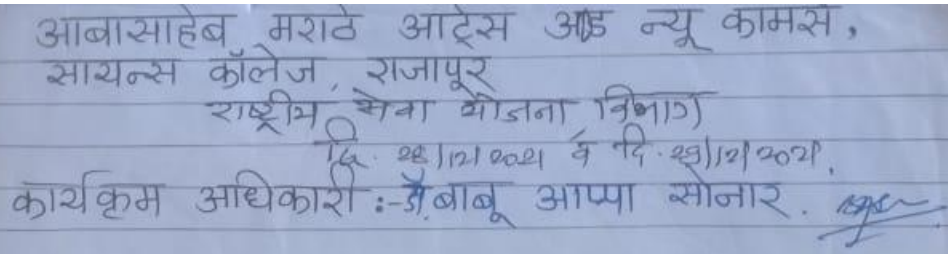 आबासाहेब मराठे आर्ट्स अँड न्यू कामर्स,
सायन्स कॉलेज, राजापूर
राष्ट्रीय सेवा योजना विभाग
दि. २८/१२/२०२१ व दि. २९/१२/२०२१.
कार्यक्रम अधिकारी :- डॉ. बाबू आप्पा सोनार.